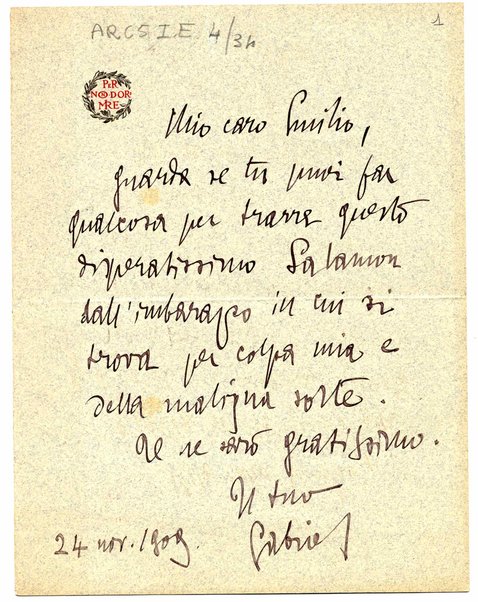 ARCS I E 4/34
1
PER
NON DOR
MIRE
Mio caro Emilio,
guarda se tu puoi far
qualcosa per trarre questo
disperatissimo Salamon
dall'imbarazzo in cui si
trova per colpa mia e
della maligna sorte.
Te ne sarò gratissimo.
Il tuo
Gabriel
24 nov. 1909.